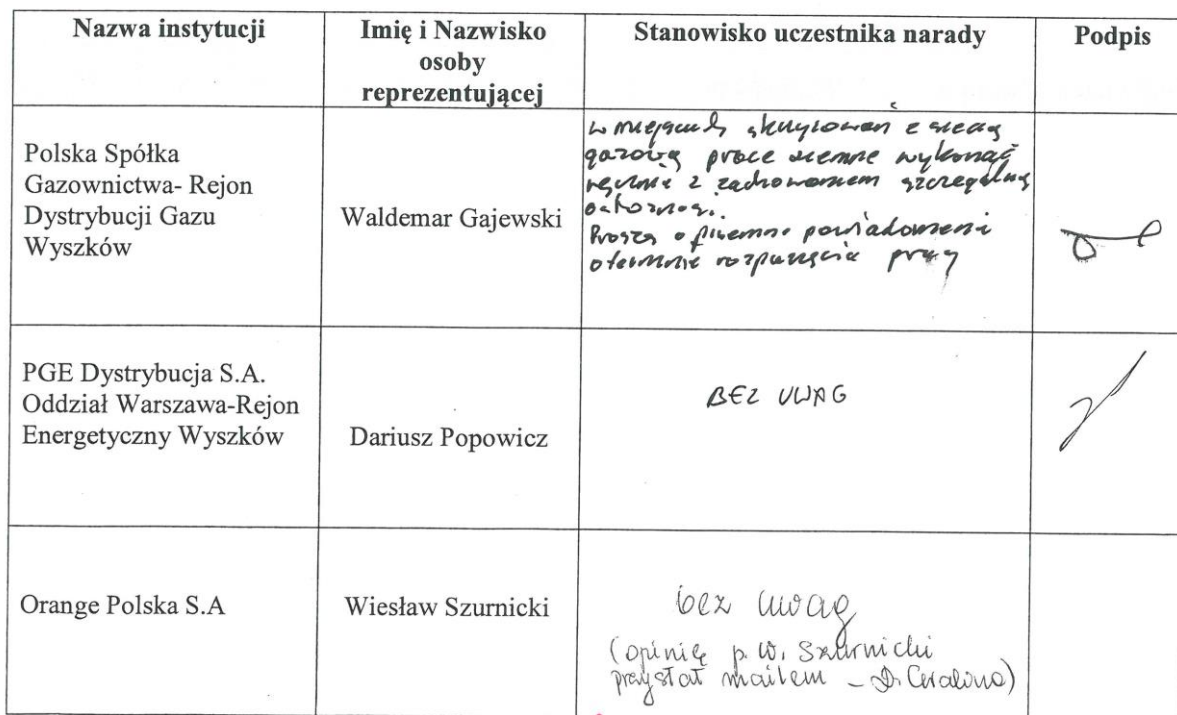 Nazwa instytucji
Imię i Nazwisko
osoby
reprezentującej
Stanowisko uczestnika narady
Podpis
Polska Spółka
Gazownictwa- Rejon
Dystrybucji Gazu
Wyszków
Waldemar Gajewski
w miejscach skrzyżowań z siecią
gazową prace ziemne wykonać
ręcznie z zachowaniem szczególnej
ostrożności.
Proszę o pisemne powiadomienie
o terminie rozpoczęcia pracy
PGE Dystrybucja S.A.
Oddział Warszawa-Rejon
Energetyczny Wyszków
Dariusz Popowicz
BEZ UWAG
Orange Polska S.A
Wiesław Szurnicki
bez uwag
(opinię p. W. Szurnicki
przysłał mailem -